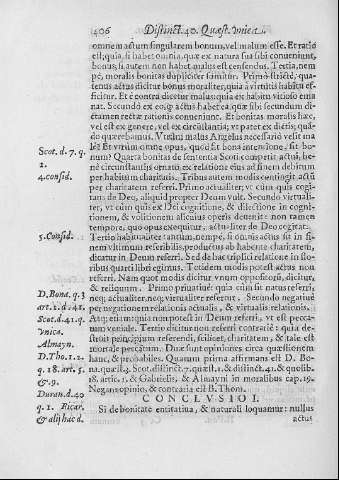 406 Distinct. 40. Quæst. Vnica.
omnem actum singularem bonum, vel malum esse. Et ratio
est; quia, si habet omnia, quæ ex natura sua sibi conueniunt,
bonus, si autem non habet malus est censendus. Tertia, nem
pè, moralis bonitas dupliciter sumitur. Primo strictè, qua-
tenus actus dicitur bonus moraliter, quia à virtutis habitu ef-
ficitur. Et è contra dicitur malus, quia ex habitu vitioso ema
nat. Secundo ex eo, quod actus habet ea, quæ sibi secundum di-
ctamen rectæ rationis conueniunt. Et bonitas moralis hæc,
vel est ex genere, vel ex circunstantijs; vt patet ex dictis, quā-
do quærebamus. Vtrum malus Angelus necessariò velit ma
lè? Et vtrum omne opus, quod fit bona intensione, sit bo-
Scot. d. 7. q. num? Quarta bonitas de sententia Scoti competit actui, be-
2. nè circunstantijs ornati, ex relatione eius ad finem debitum
4. consid. per habitum charitatis. Tribus autem modis contingit actū
per charitatem referri. Primo actualiter, vt cùm quis cogi-
tans de Deo, aliquid propter Deum vult. Secundo virtuali-
ter, vt cùm quis ex Dei cognitione, & dilectione in cogni-
tionem, & volitionem alicuius operis deuenit: non tamen
tempore, quo opus exequitur, actualiter de Deo cogitat.
5. Consid. Tertio habitualiter tantùm, nempè, si omnis actus sit in fi-
nem vltimum referibilis, productus ab habente charitatem,
dicatur in Deum referri. Sed de hac triplici relatione in
quarti libri egimus. Totidem modis potest actus non
referri. Nam quot modis dicitur vnum oppositorum, dicitur,
& reliquum. Primo priuatiuè: quia cùm sit natus referri,
D. Bona. q. 3 neq; actualiter, neq; virtualiter refertur. Secundo negatiuè
art. 1. d. 41. per negationem relationis actualis, & virtualis relationis.
Scot. d. 41. q. Atq; etiam quia non potest in Deum referri, vt est pecca-
Vnica. tum veniale. Tertio dicitur non referri contrariè: quia de-
Almayn. struit principium referendi, scilicet, charitatem, & tale est
D. Tho. 1. 2. mortale peccatum. Duæ sunt opiniones circa quæstionem
q. 18. art. 5. hanc, & probabiles. Quarum prima affirmans est D. Bo-
& 9. na. quæst. 3. Scot. distinct. 7. quæst. 1. & distinct. 41. & quolib.
Duran. d. 40 18. artic. 1. & Gabrielis, & Almayni in moralibus cap. 19.
q. 1. Ricar. Negans opinio, & contraria est B. Thom.
& alij hac d. CONCLVSIO I.
Si de bonitate entitatiua, & naturali loquamur: nullus
actus